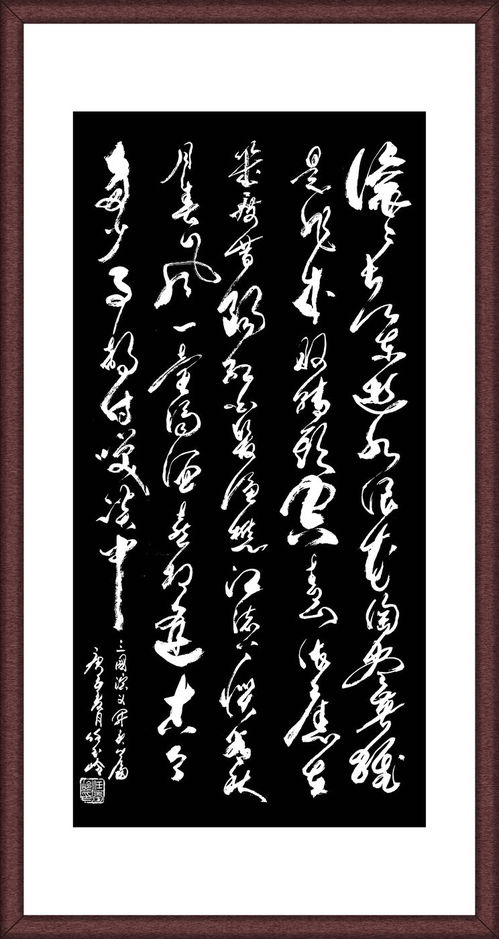 滚々长江东逝水浪花淘尽英雄
是非成败转头空青山依旧在
幾度昔阳红白发渔樵江渚上惯看秋
月春风一壶浊酒喜相逢古今
多少事都付笑谈中
三國演义开卷篇
庚子春月任玉岭